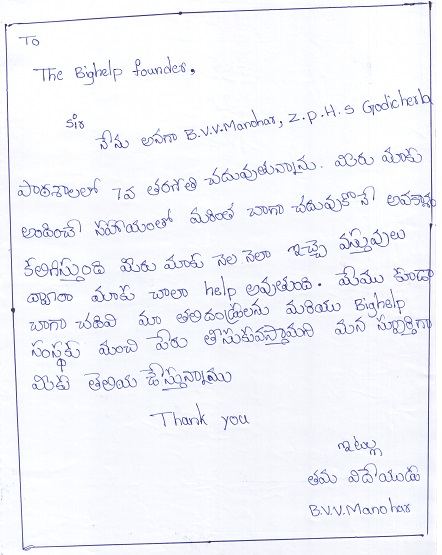 To
The Bighelp founder,
Sir
నేను అనగా B.V.V.Manohar, Z.P.H.S Godicherla
పాఠశాలలో 7వ తరగతి చదువుతున్నాను. మీరు మాకు
అందించే సహాయంతో మరింత బాగా చదువుకొనే అవకాశం
కలిగిస్తుంది మీరు మాకు నెల నెలా ఇచ్చె వస్తువులు
ద్వారా మాకు చాలా help అవుతుంది. మేము కూడా
బాగా చదివి మా తలిదండ్రులను మరియు Bighelp
సంస్థకు మంచి పేరు తీసుకువస్తామని మన స్పూర్తిగా
మీకు తెలియ చేస్తున్నాము
Thank you
ఇట్లు
తమ విదేయుడు
B.V.V.Manohar